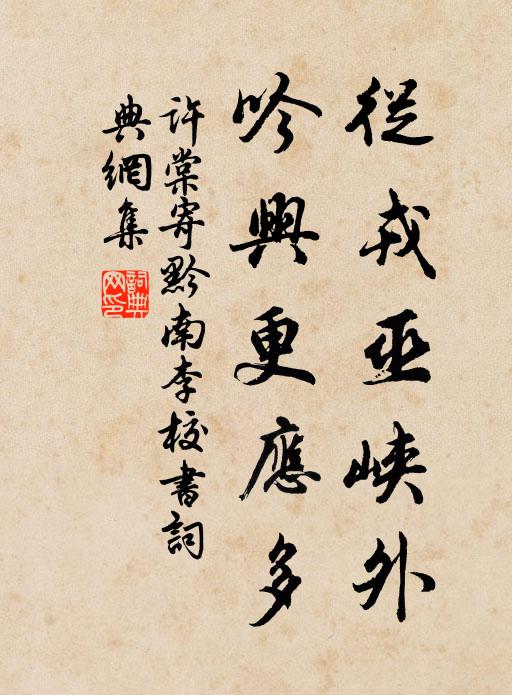 從戎巫峽外
吟興更應多
許棠寄黔南李校書詞
典網集
詞典
网印